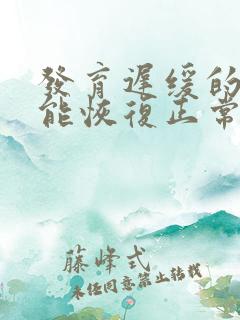 發育遲缓的
能恢復正常
藤峰式
未任同意禁止转载